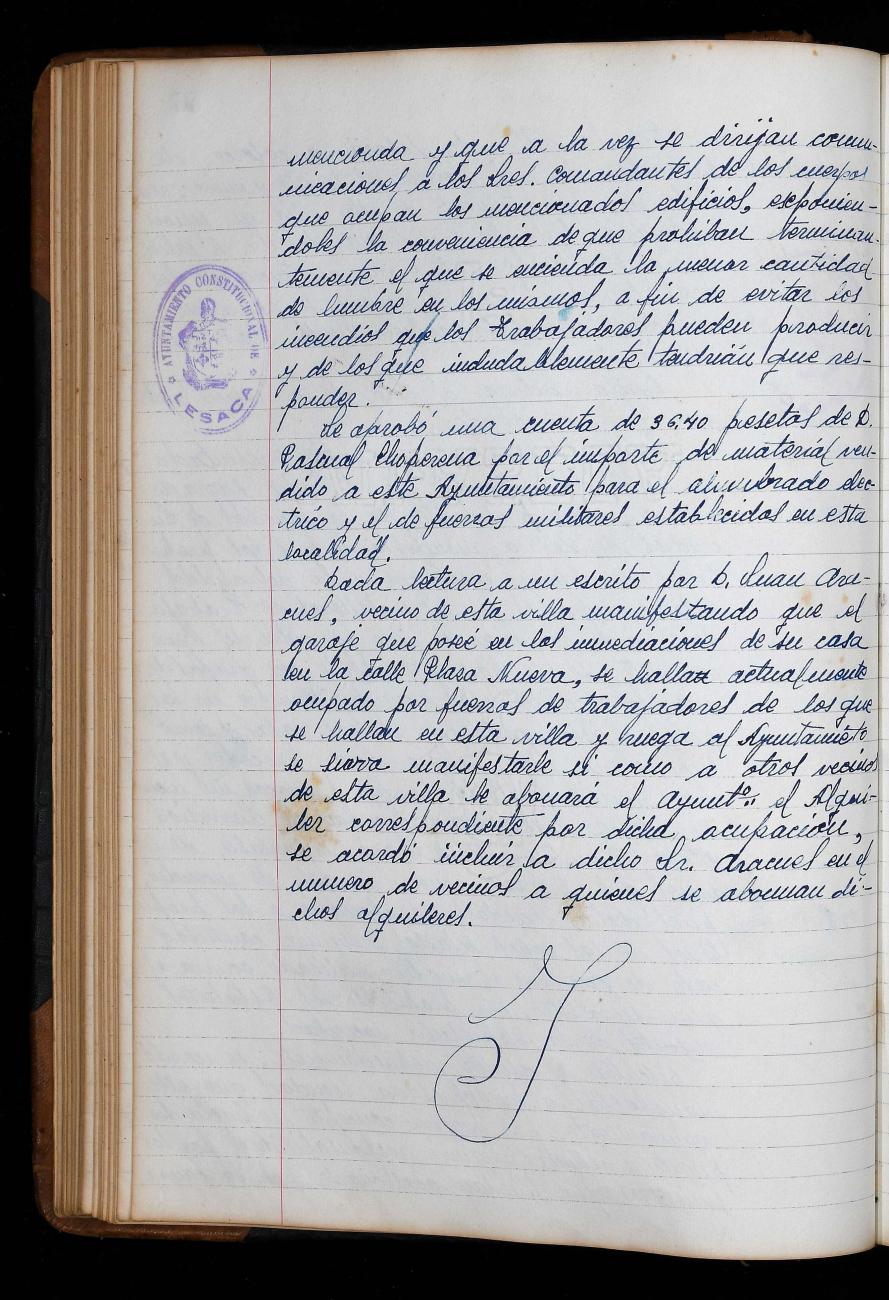 AYUNTAMIENTO CONSTITUCIONAL DE
LESACA
mencionda y que a la vez se dirijan comu-
nicaciones a los Sres. Comandantes de los cuerpos
que ocupan los mencionados edificios, exponien-
doles la conveniencia de que prohiban terminan-
temente el que se encienda la menor cantidad
de lumbre en los mismos, a fin de evitar los
incendios que los Trabajadores pueden producir
y de los que indudablemente tendrián que res-
ponder.
Se aprobó una cuenta de 96,40 pesetas de D.
Pascual Choperena por el importe de material ven-
dido a este Ayuntamiento para el alumbrado elec-
trico y el de fuerzas militares establecidos en esta
localidad.
Dada lectura a un escrito por D. Juan Ara-
cues, vecino de esta villa manifestando que el
garaje que poseé en las inmediaciones de su casa
en la calle Plaza Nueva, se halla actualmente
ocupado por fuerzas de trabajadores de los que
se hallan en esta villa y ruega al Ayuntamieto
se siarva manifestarle si como a otros vecinos
de esta villa le abonará el Ayuntº. el Alqui-
ler correspondiente por dicha ocupación,
se acordó incluir a dicho Sr. Aracues en el
numero de vecinos a quienes se abonan di-
chos alquileres.